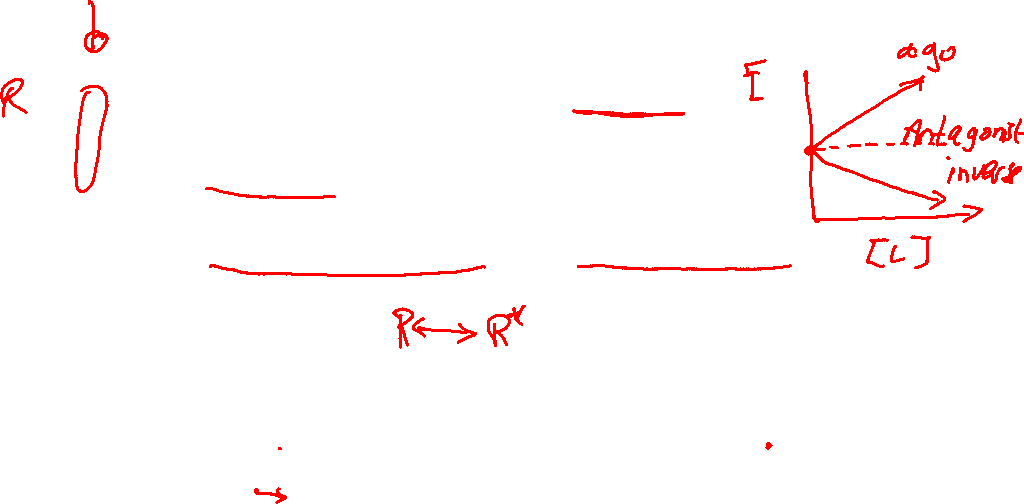 R
E
ago
Antagonist
inverse
[L]
R ↔ R*